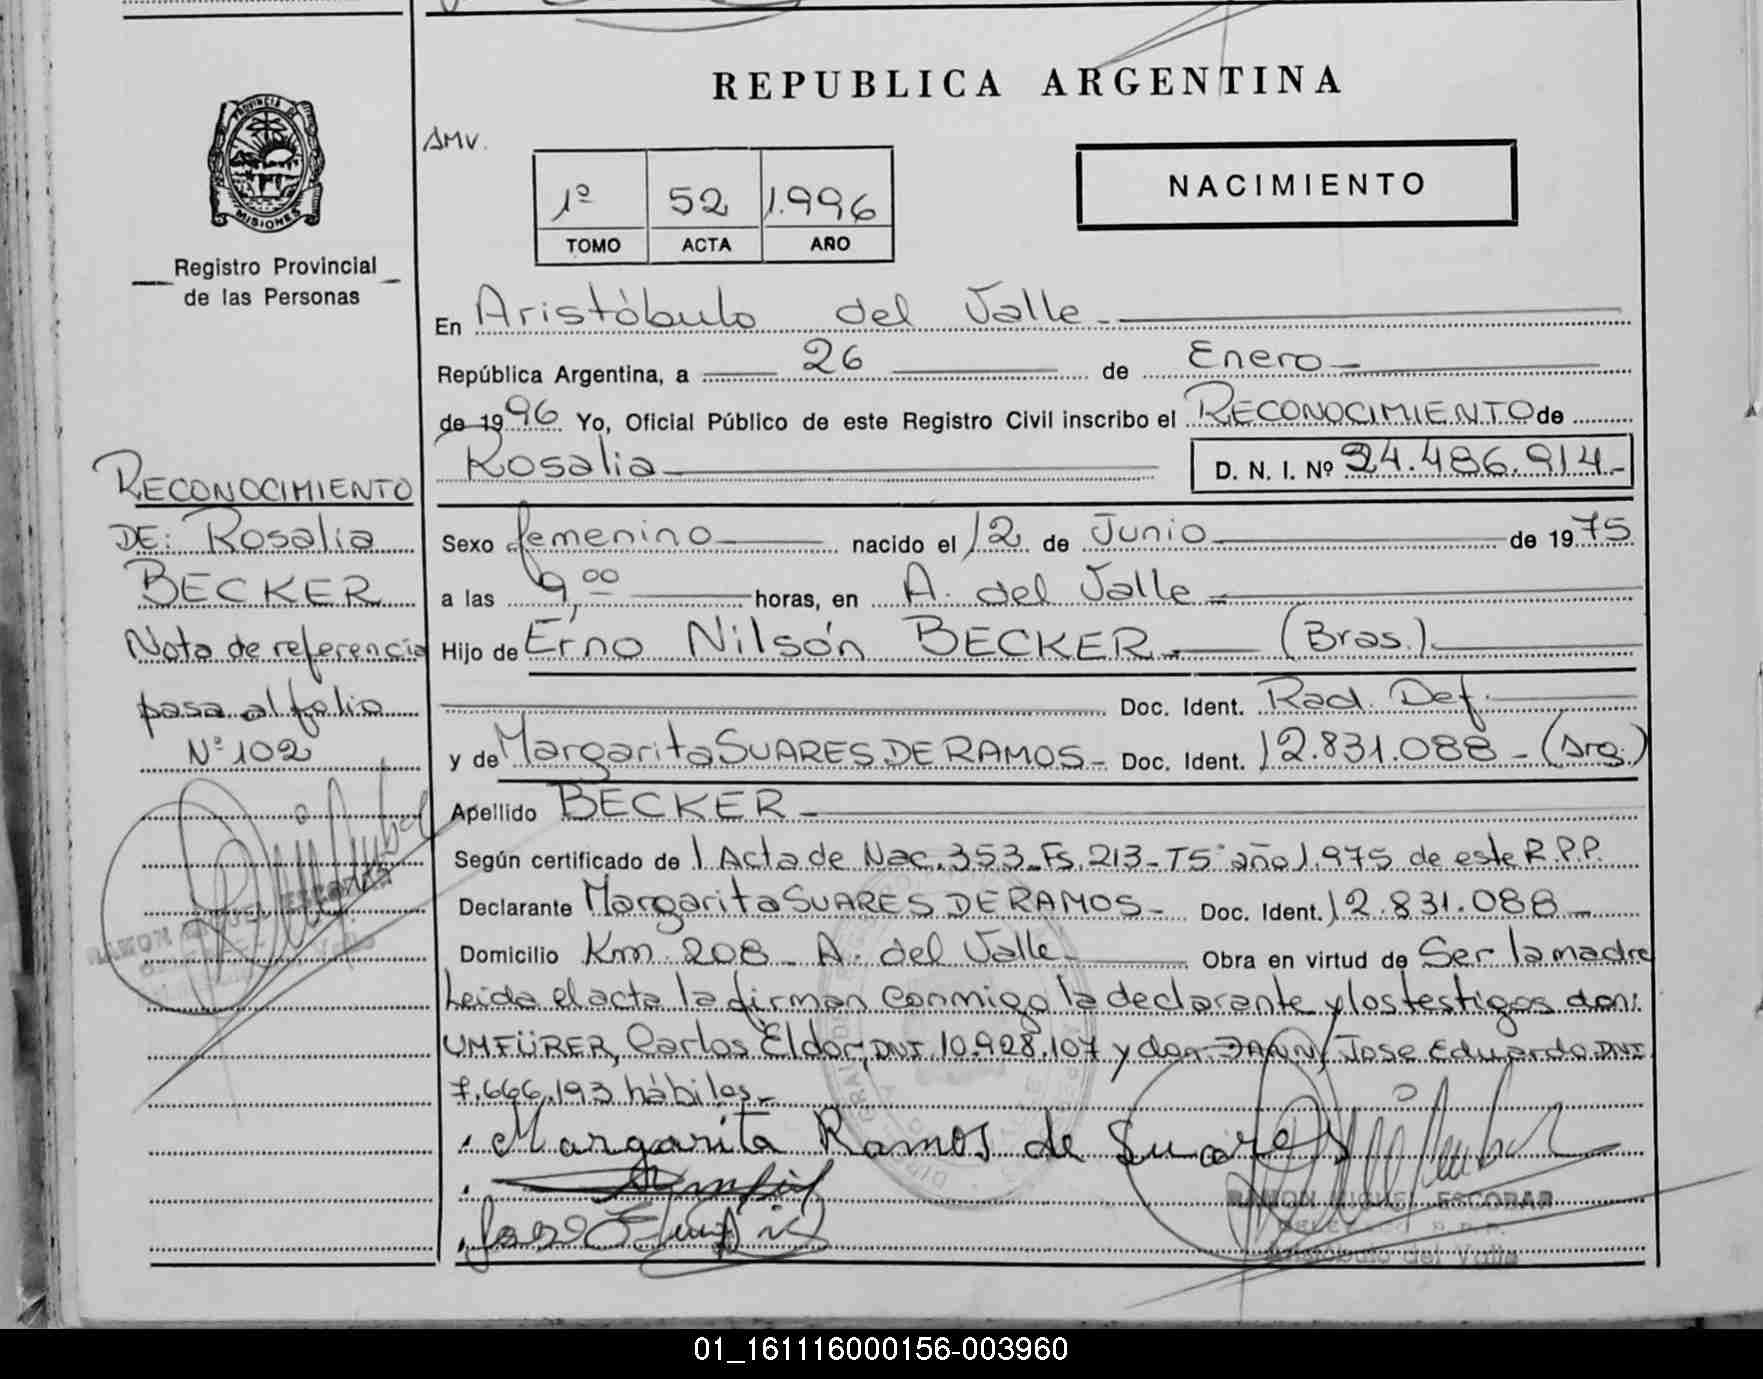 REPUBLICA ARGENTINA
AMV.
PROVINCIA DE
MISIONES
Registro Provincial
de las Personas
1º 52 1.996
TOMO ACTA AÑO
NACIMIENTO
En Aristóbulo del Valle
República Argentina, a 26 de Enero
de 1996 Yo, Oficial Público de este Registro Civil inscribo el RECONOCIMIENTO de
Rosalia D. N. I. Nº 24.486.914.-
Sexo femenino nacido el 12 de Junio de 1975
a las 9,00 horas, en A. del Valle
Hijo de Erno Nilsón BECKER (Bras.)
Doc. Ident. Rad. Def.
y de Margarita SUARES DE RAMOS- Doc. Ident. 12.831.088 - (Arg.)
Apellido BECKER
Según certificado de 1 Acta de Nac. 353-Fs. 213-T5º año 1.975 de este R.P.P.
Declarante Margarita SUARES DE RAMOS- Doc. Ident. 12.831.088
Domicilio Km. 208 - A. del Valle Obra en virtud de Ser la madre
Leida el acta la firman conmigo la declarante y los testigos don:
UMFÜRER, Carlos Eldor, DNI. 10.928.107 y don JANN, Jose Eduardo DNI
7.666.193 hábiles.-
Margarita Ramos de Suares
RAMON MIGUEL ESCOBAR
DELEGADO R.P.P.
Aristóbulo del Valle
RECONOCIMIENTO
DE: Rosalia
BECKER
Nota de referencia
pasa al folio
Nº 102
RAMON MIGUEL ESCOBAR
01_161116000156-003960